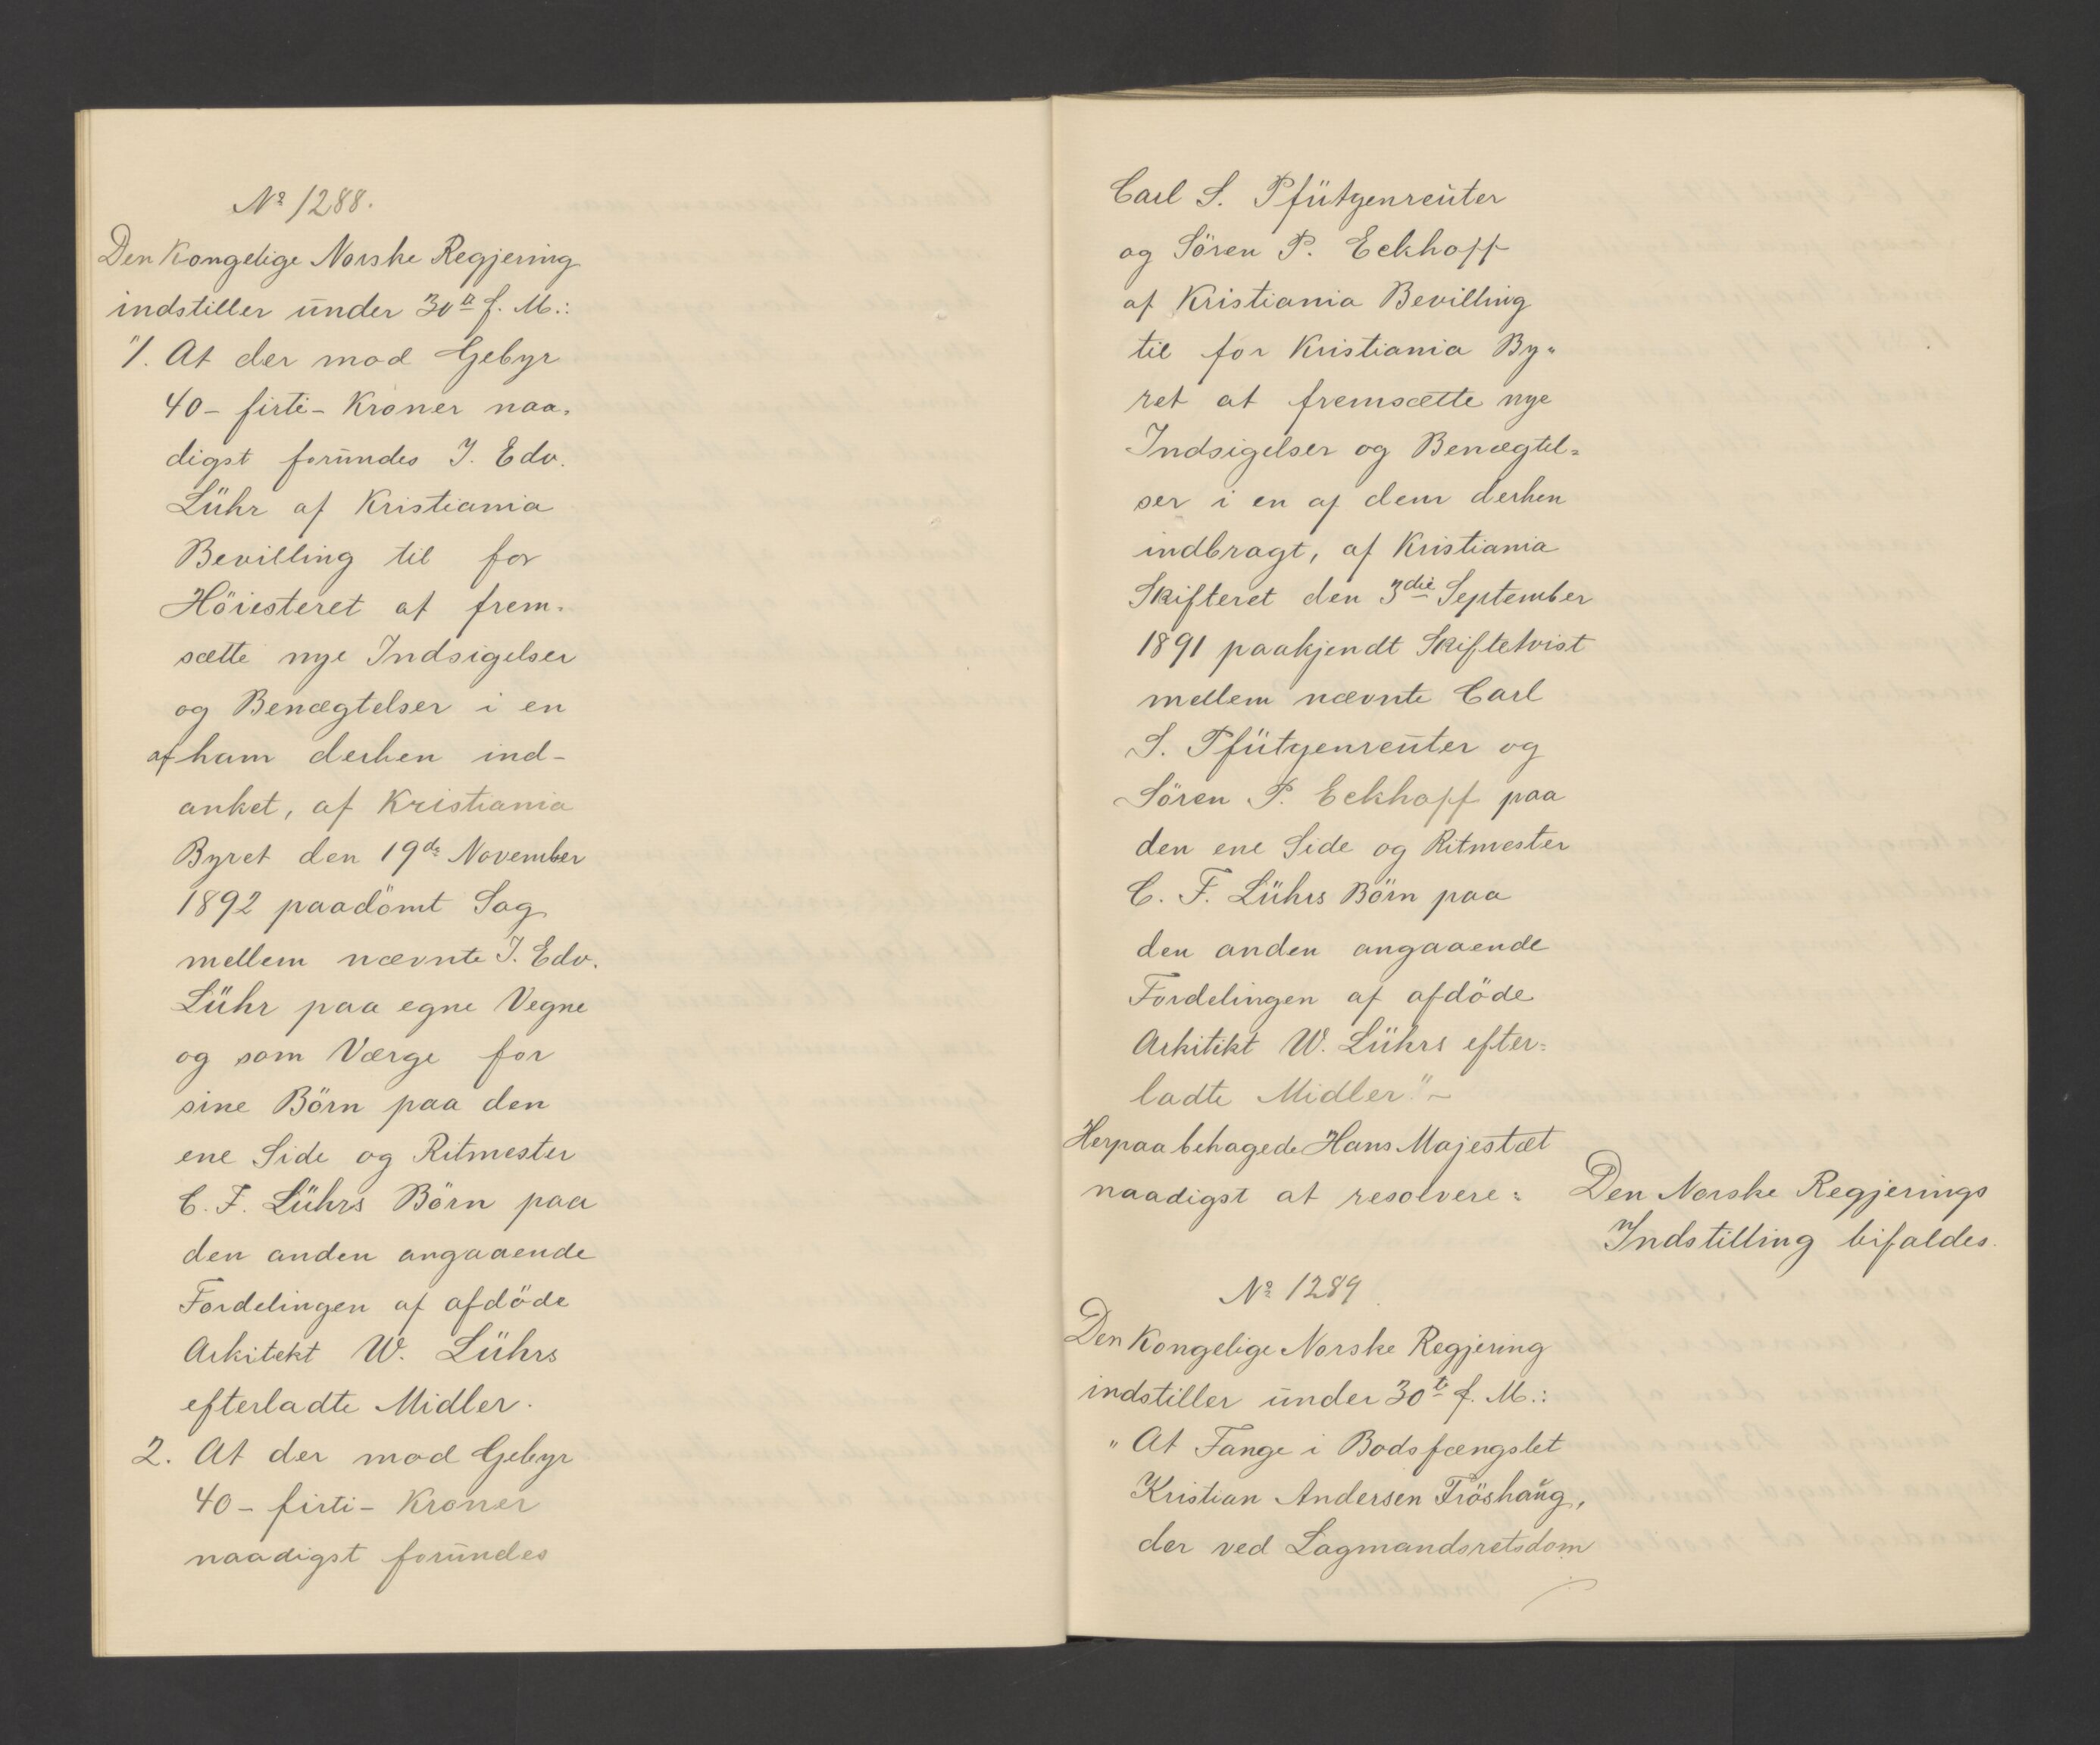 No 1288.
Den Kongelige Norske Regjering
indstiller under 30te f. M.:
"1. At der mod Gebyr
40 - firti - Kroner naa-
digst forundes J. Edv.
Lühr af Kristiania
Bevilling til for
Höiesteret at frem-
sætte nye Indsigelser
og Benægtelser i en
af ham derhen ind-
anket, af Kristiania
Byret den 19de November
1892 paadömt Sag
mellem nævnte J. Edv.
Lühr paa egne Vegne
og som Værge for
sine Börn paa den
ene Side og Ritmester
C. F. Lührs Börn paa
den anden angaaende
Fordelingen af afdöde
Arkitekt W. Lührs
efterladte Midler.
2. At der mod Gebyr
40 - firti - Kroner
naadigst forundes
Carl S. Pfützenreuter
og Sören P. Eckhoff
af Kristiania Bevilling
til for Kristiania By-
ret at fremsætte nye
Indsigelser og Benægtel-
ser i en af dem derhen
indbragt, af Kristiania
Skifteret den 3die September
1891 paakjendt Skiftetvist
mellem nævnte Carl
S. Pfützenreuter og
Sören P. Eckhoff paa
den ene Side og Ritmester
C. F. Lührs Börn paa
den anden angaaende
Fordelingen af afdöde
Arkitikt W. Lührs efter-
ladte Midler." -
Herpaa behagede Hans Majestæt
naadigst at resolvere: Den Norske Regjerings
Indstilling bifaldes.
No 1289
Den Kongelige Norske Regjering
indstiller under 30te f. M.:
"At Fange i Bodsfængslet
Kristian Andersen Fröshaug,
der ved Lagmandsretsdom